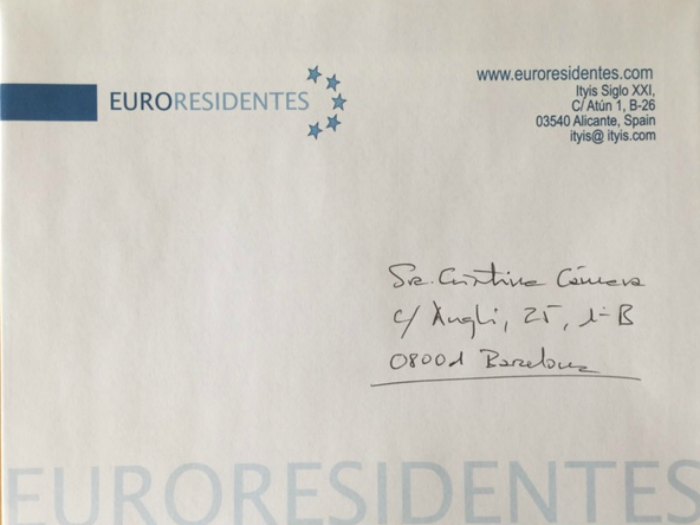 EURORESIDENTES
www.euroresidentes.com
Ityis Siglo XXI,
C/ Atún 1, B-26
03540 Alicante, Spain
ityis@ ityis.com
Sra. Cristina Cámara
C/ Anglí, 25, 1-B
08001 Barcelona
EURORESIDENTES